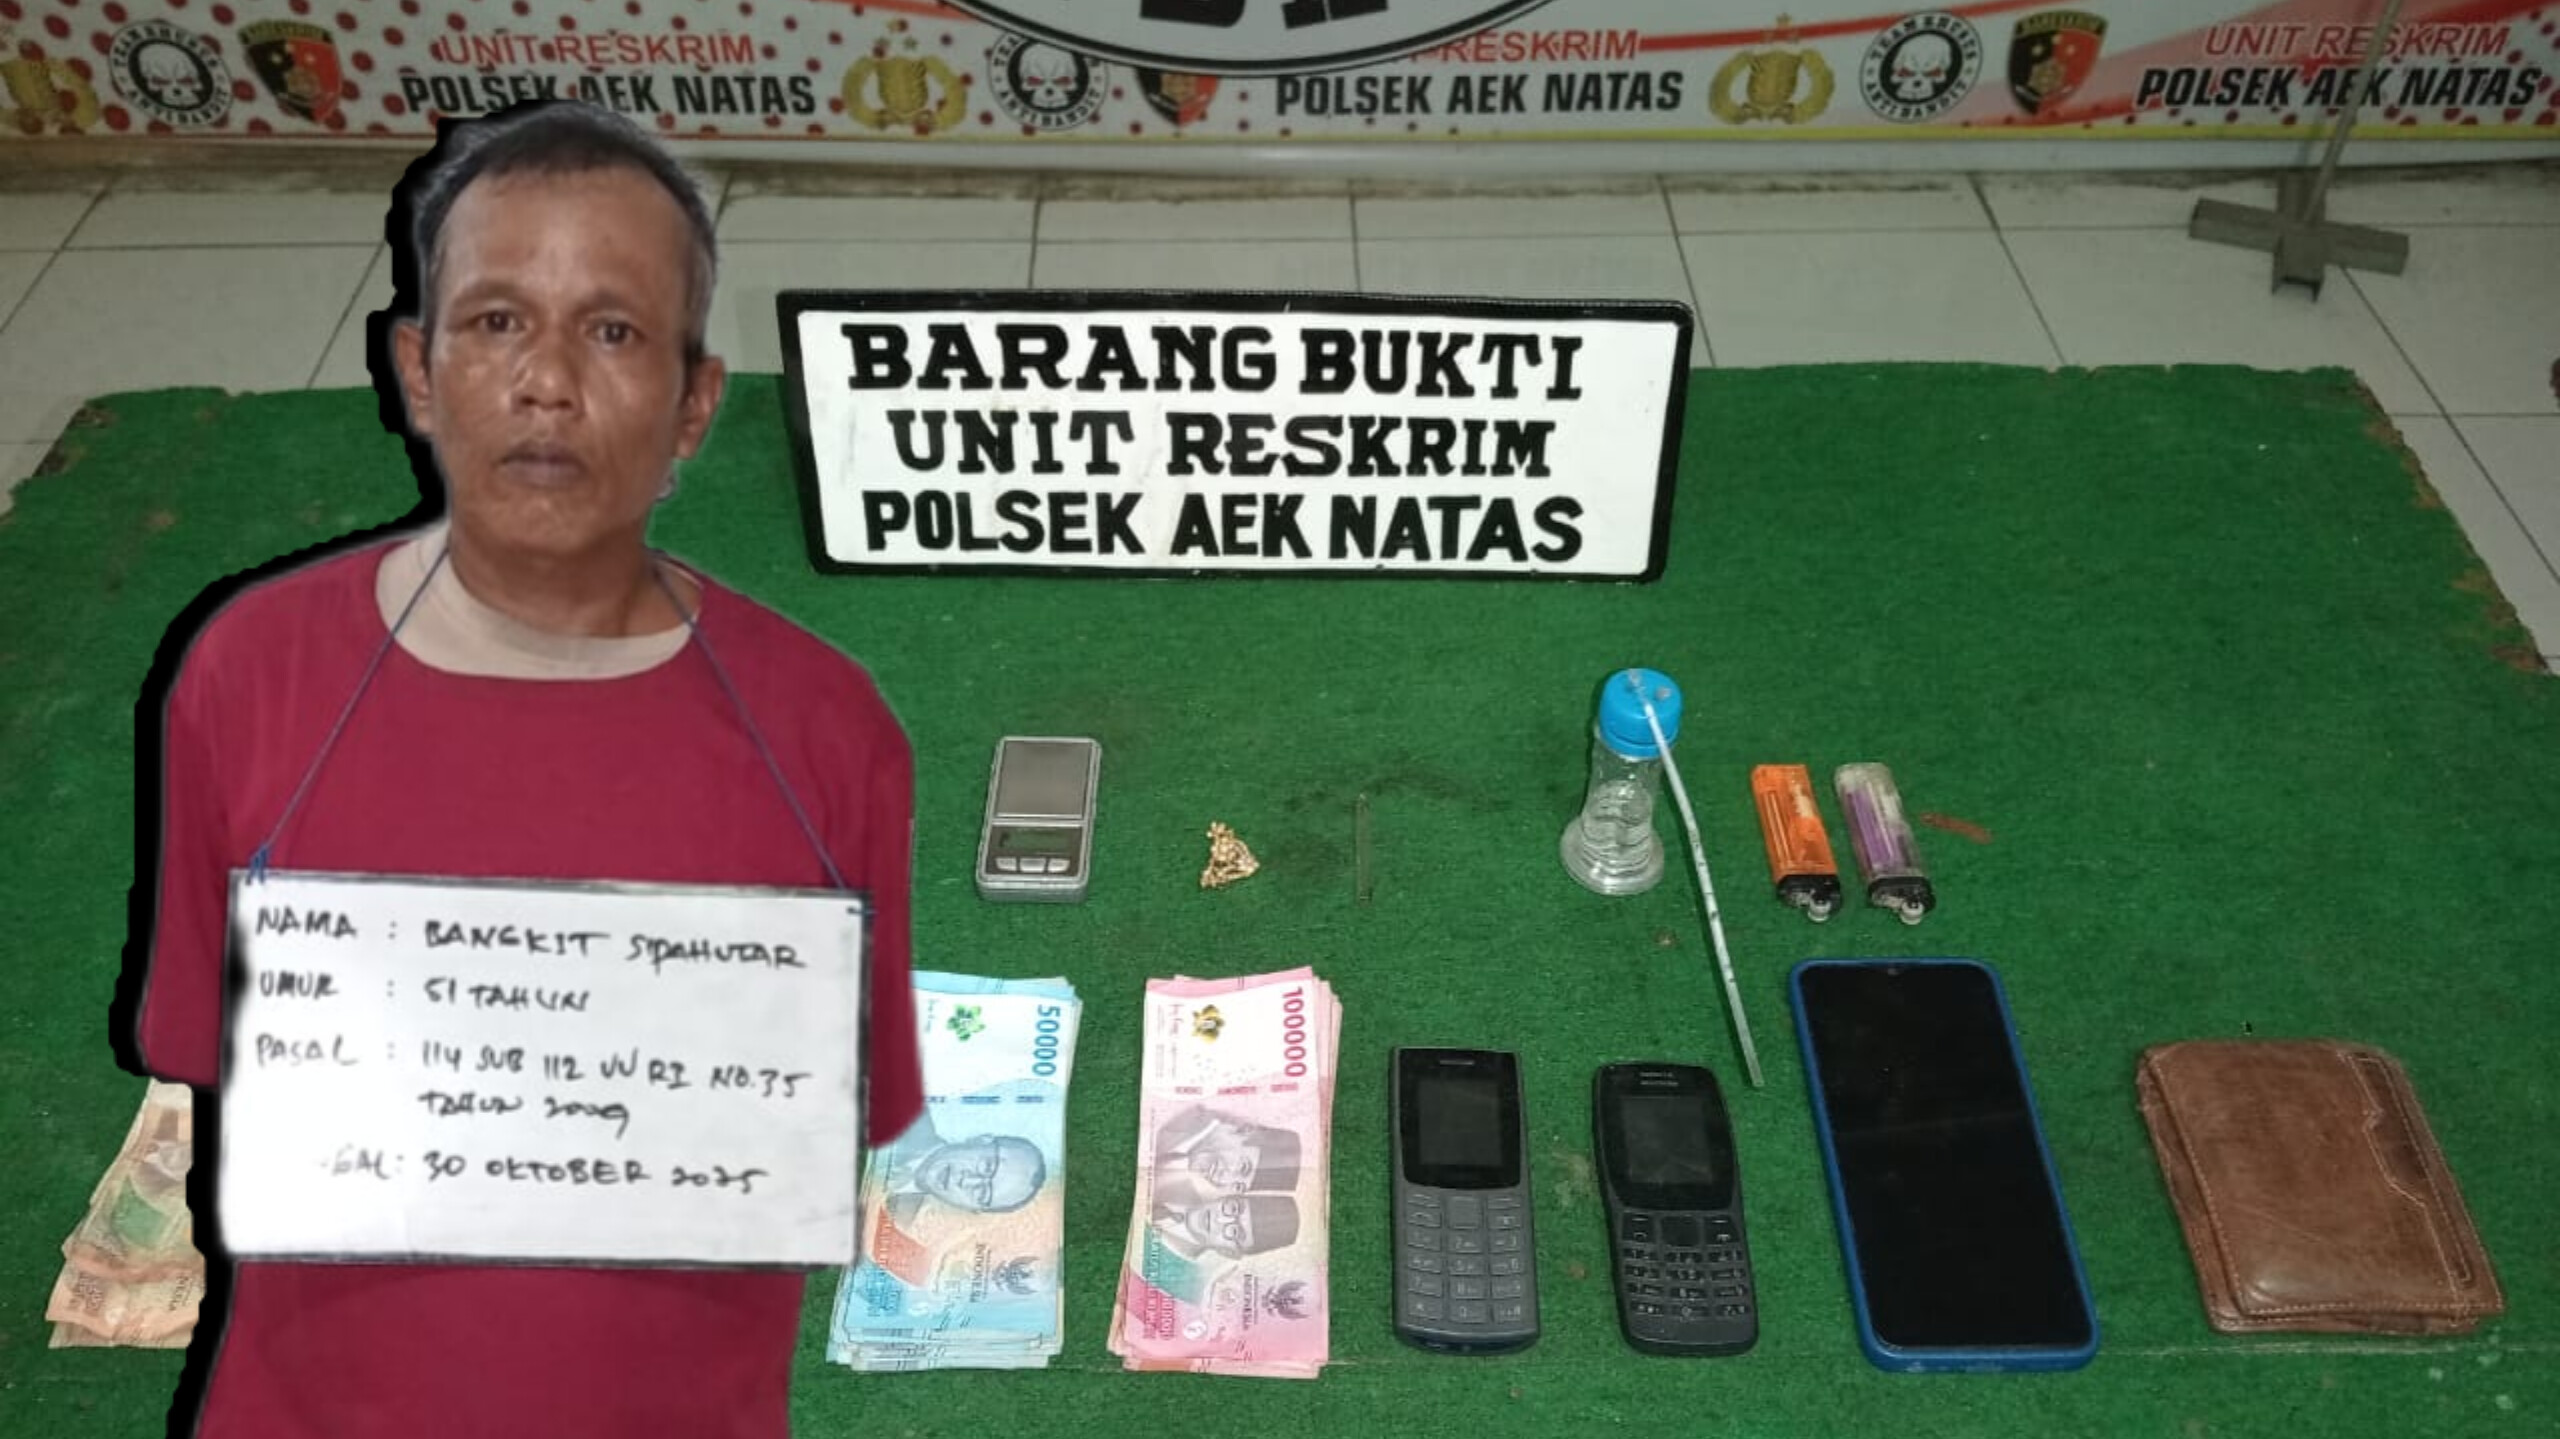 UNIT RESKRIM
POLSEK AEK NATAS
TEAM KHUSUS
ANTI BANDIT
RESKRIM
POLSEK AEK NATAS
TEAM KHUSUS
ANTI BANDIT
UNIT RESKRIM
POLSEK AEK NATAS
BARANG BUKTI
UNIT RESKRIM
POLSEK AEK NATAS
NAMA : BANGKIT SIPAHUTAR
UMUR : 51 TAHUN
PASAL : 114 SUB 112 UU RI NO.35
TAHUN 2009
GAL : 30 OKTOBER 2025
50000
100000
INDONESIA
NOKIA